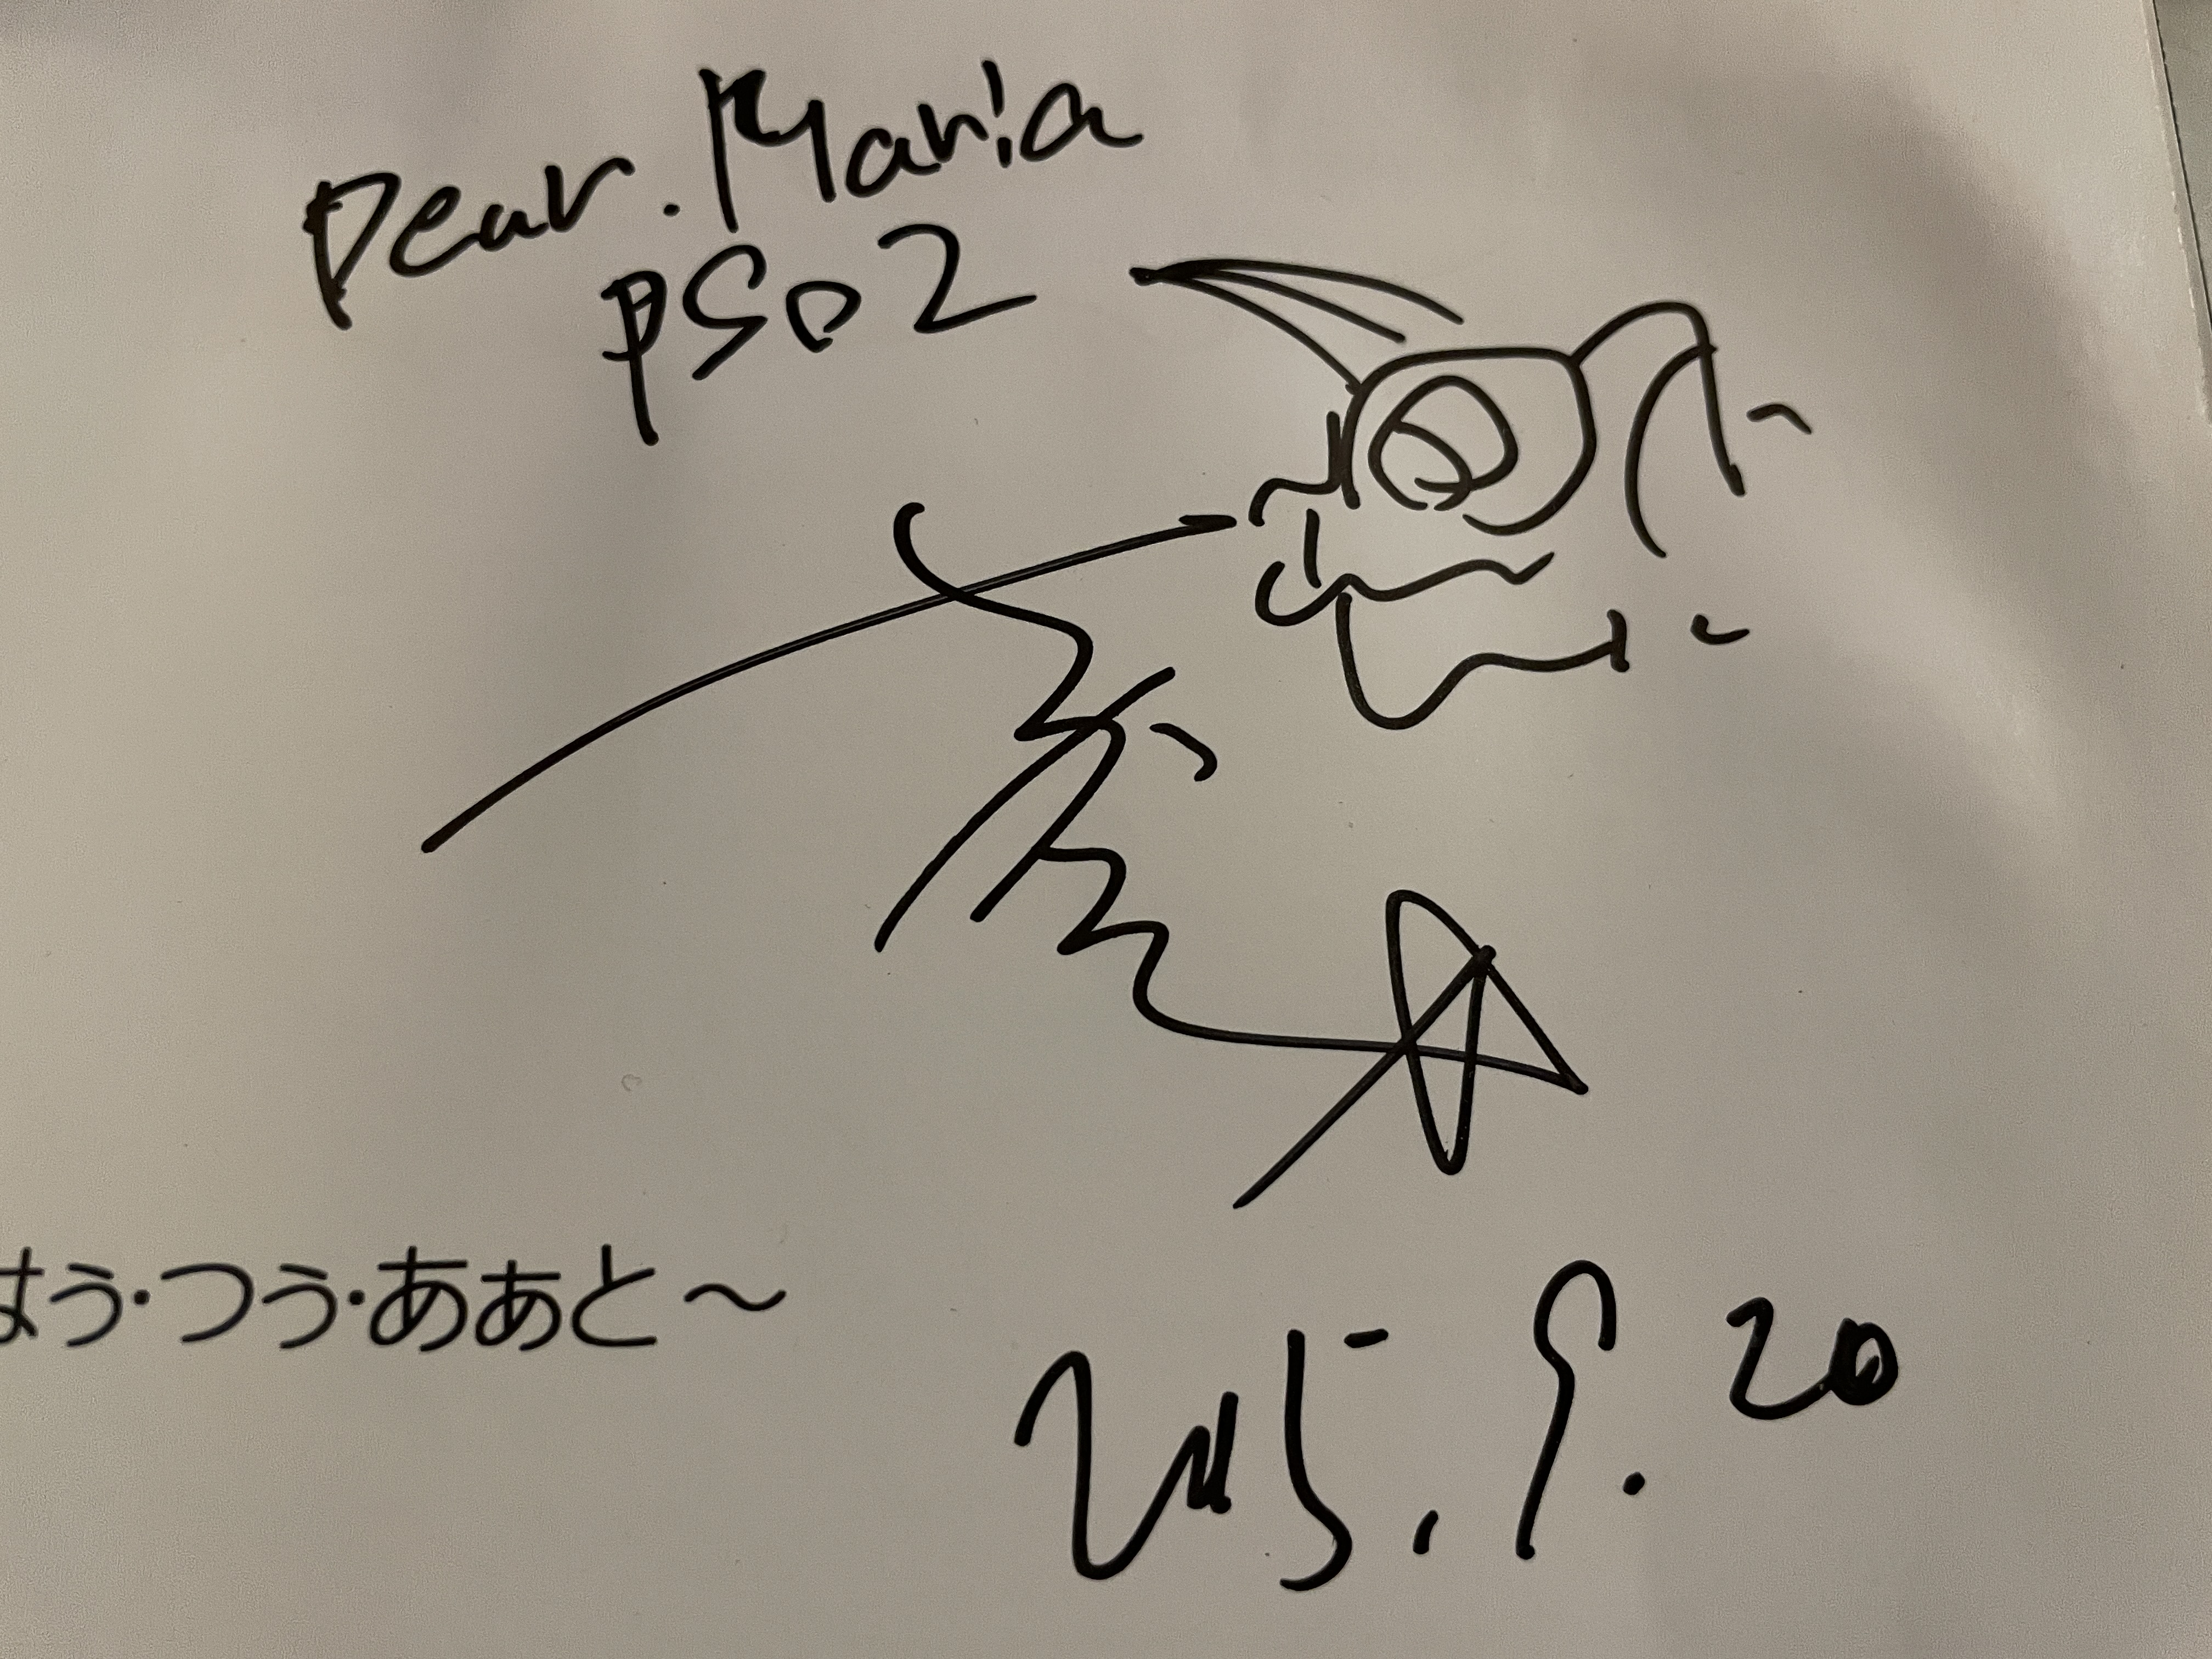 Dear. Maria
PSO2
う・つぅ・あぁと～
2025. 9. 20